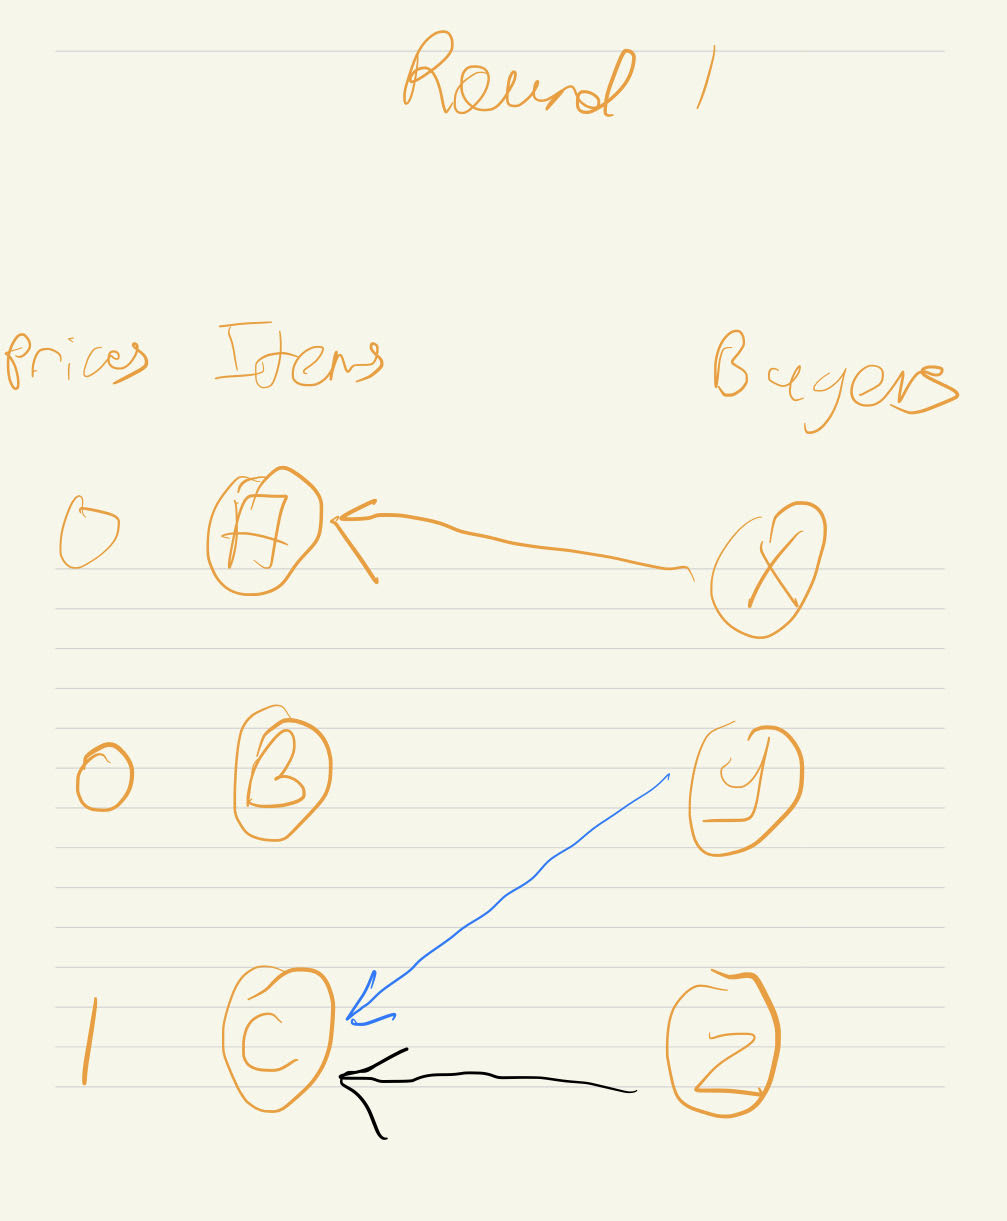 Round 1
Prices Items Buyers
0 A X
0 B y
1 C Z